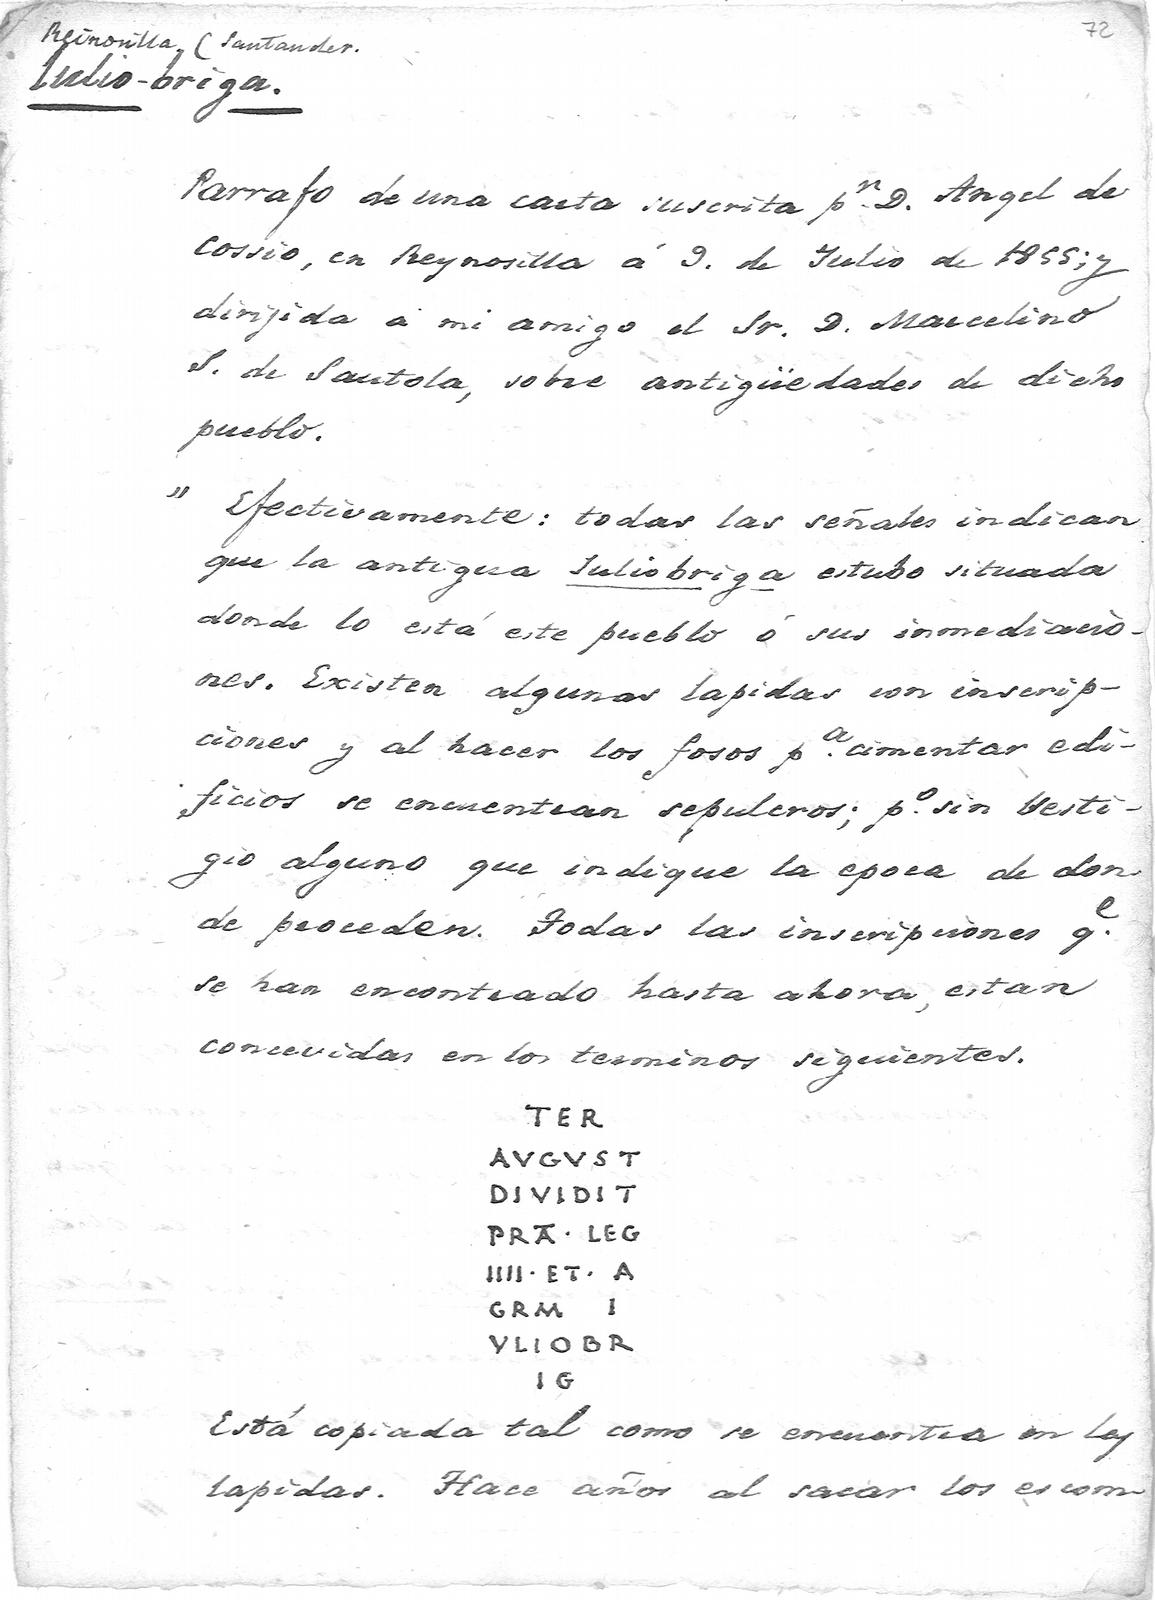 72
Reinosilla, (Santander.
Iulio-briga.
Parrafo de una carta suscrita pr. D. Angel de
Cossio, en Reynosilla á 9. de Julio de 1855; y
dirijida á mi amigo el Sr. D. Marcelino
S. de Sautola, sobre antigüedades de dicho
pueblo.
" Efectivamente: todas las señales indican
que la antigua Iuliobriga estubo situada
donde lo está este pueblo ó sus inmediacio-
nes. Existen algunas lapidas con inscrip-
ciones y al hacer los fosos pa. cimentar edi-
ficios se encuentran sepulcros; po. sin vesti-
gio alguno que indique la epoca de don-
de proceden. Todas las inscripciones qe.
se han encontrado hasta ahora, estan
concevidas en los terminos siguientes.
TER
AVGVST
DIVIDIT
PRĀ· LEG
IIII· ET· A
GRM I
VLIOBR
IG
Está copiada tal como se encuentra en las
lapidas. Hace años al sacar los escom-